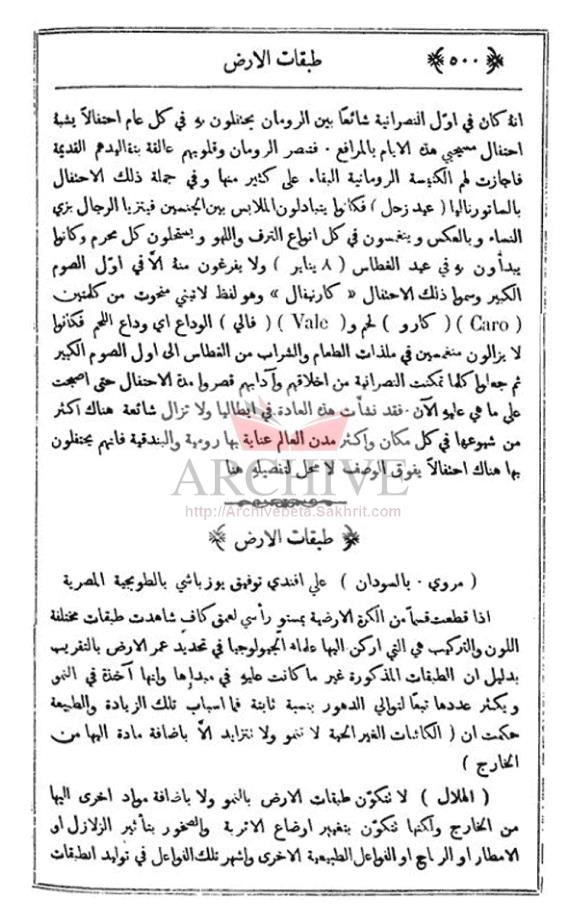 ﴿ ٥٠٠ ﴾
طبقات الارض
انهُ كان في اوّل النصرانية شائعًا بين الرومان يحتفلون بهِ في كل عام احتفالاً يشبه
احتفال مسيحيي هذه الايام بالمرافع . فتنصر الرومان وقلوبهم عالقة بتقاليدهم القديمة
فاجازت لهم الكنيسة الرومانية البقاء على كثير منها وفي جملة ذلك الاحتفال
بالساتورناليا ( عيد زحل ) فكانوا يتبادلون الملابس بين الجنسين فيتزيا الرجال بزي
النساء وبالعكس وينغمسون في كل انواع الترف واللهو ويستحلون كل محرم وكانوا
يبدأون بهِ في عيد الغطاس ( ٨ يناير ) ولا يفرغون منهُ الاّ في اوّل الصوم
الكبير وسموا ذلك الاحتفال « كارنيفال » وهو لفظ لاتيني منحوت من كلمتين
( Caro ) ( كارو ) لحم و ( Vale ) ( فالي ) الوداع اي وداع اللحم فكانوا
لا يزالون منغمسين في ملذات الطعام والشراب من الغطاس الى اول الصوم الكبير
ثم جعلوا كلما تمكنت النصرانية من اخلاقهم وآدابهم قصروا مدة الاحتفال حتى اصبحت
على ما هي عليهِ الآن . فقد نشأت هذه العادة في ايطاليا ولا تزال شائعة هناك اكثر
من شيوعها في كل مكان واكثر مدن العالم عناية بها رومية والبندقية فانهم يحتفلون
بها هناك احتفالاً يفوق الوصف لا محل لتفصيلهِ هنا
ARCHIVE
http://Archivebeta.Sakhrit.com
﴿ طبقات الارض ﴾
( مروي . بالسودان ) علي افندي توفيق يوزباشي بالطوبجية المصرية
اذا قطعت قسمًا من الكرة الارضية بمستوٍ رأسي لعمق كافٍ شاهدت طبقات مختلفة
اللون والتركيب هي التي اركن اليها علماء الجيولوجيا في تحديد عمر الارض بالتقريب
بدليل ان الطبقات المذكورة غير ما كانت عليهِ في مبدإها وانها آخذة في النمو
ويكثر عددها تبعًا لتوالي الدهور بنسبة ثابتة فما اسباب تلك الزيادة والطبيعة
حكمت ان ( الكائنات الغير الحية لا تنمو ولا تتزايد الاّ باضافة مادة اليها من
الخارج )
( الهلال ) لا تتكوّن طبقات الارض بالنمو ولا باضافة مواد اخرى اليها
من الخارج ولكنها تتكوّن بتغيير اوضاع الاتربة والصخور بتأثير الزلازل او
الامطار او الرياح او الفواعل الطبيعية الاخرى واشهر تلك الفواعل في توليد الطبقات